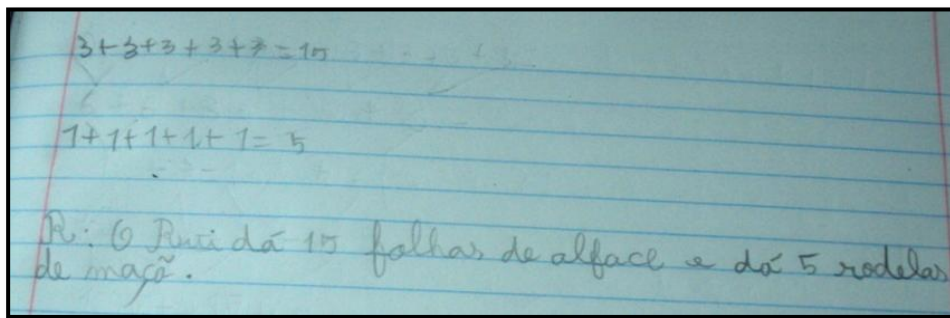 3+3+3+3+3=15
1+1+1+1+1=5
R: O Rui dá 15 folhas de alface e dá 5 rodelas
de maçã.